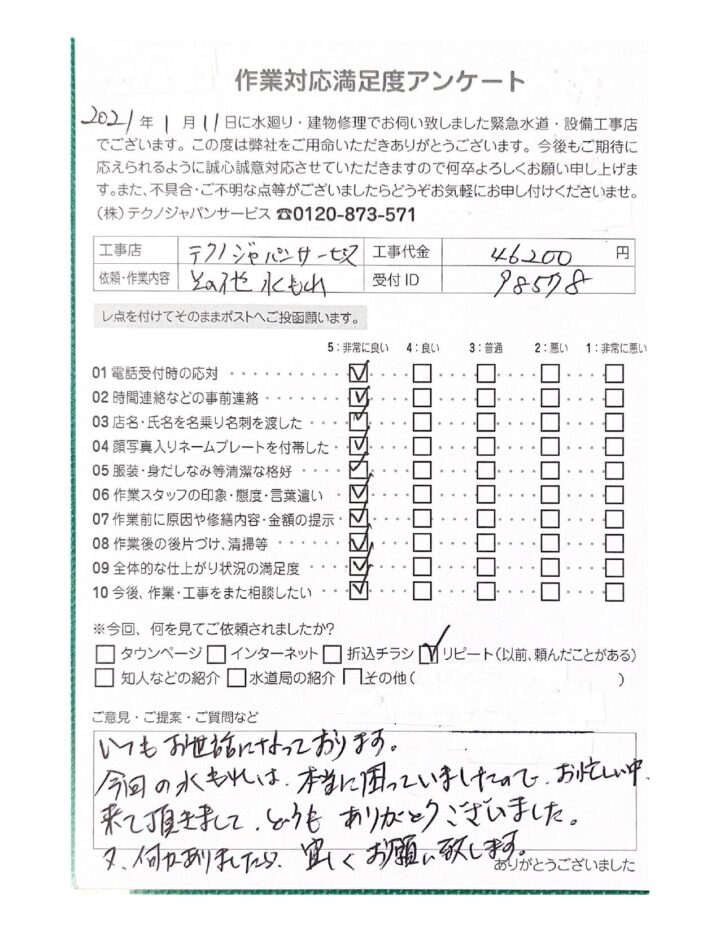 作業対応満足度アンケート
2021年1月11日に水廻り・建物修理でお伺い致しました緊急水道・設備工事店
でございます。この度は弊社をご用命いただきありがとうございます。今後もご期待に
応えられるように誠心誠意対応させていただきますので何卒よろしくお願い申し上げま
す。また、不具合・ご不明な点等がございましたらどうぞお気軽にお申し付けくださいませ。
(株)テクノジャパンサービス ☎0120-873-571
工事店 テクノジャパンサービス 工事代金 46200 円
依頼・作業内容 その他 水もれ 受付ID 98578
レ点を付けてそのままポストへご投函願います。
5:非常に良い 4:良い 3:普通 2:悪い 1:非常に悪い
01 電話受付時の応対
02 時間連絡などの事前連絡
03 店名・氏名を名乗り名刺を渡した
04 顔写真入りネームプレートを付帯した
05 服装・身だしなみ等清潔な格好
06 作業スタッフの印象・態度・言葉遣い
07 作業前に原因や修繕内容・金額の提示
08 作業後の後片づけ、清掃等
09 全体的な仕上がり状況の満足度
10 今後、作業・工事をまた相談したい
※今回、何を見てご依頼されましたか?
タウンページ インターネット 折込チラシ リピート(以前、頼んだことがある)
知人などの紹介 水道局の紹介 その他( )
ご意見・ご提案・ご質問など
いつもお世話になっております。
今回の水もれは、本当に困っていましたので、お忙しい中、
来て頂きまして、どうもありがとうございました。
又、何かありましたら、宜しくお願い致します。
ありがとうございました